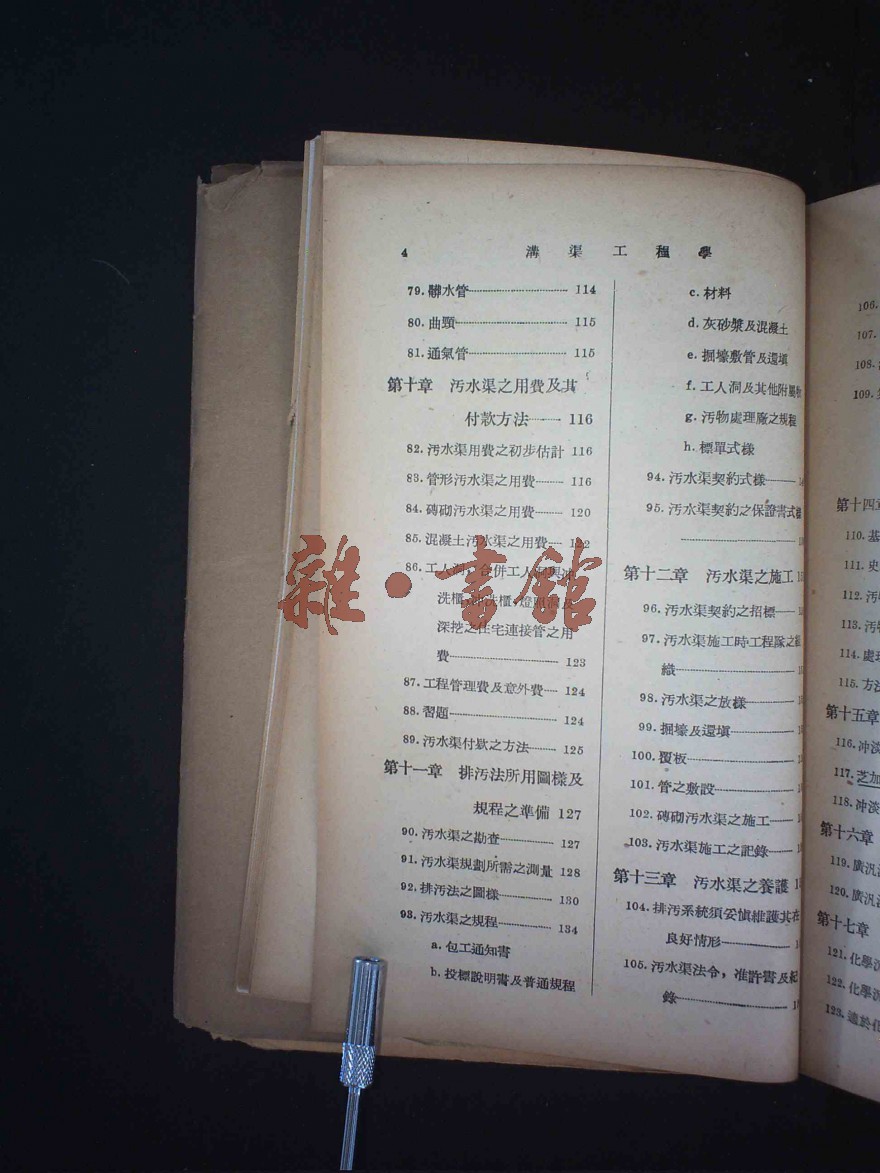 4 溝渠工程學
79.髒水管 114
80.曲頸 115
81.通氣管 115
第十章 汚水渠之用費及其
付款方法 116
82.汚水渠用費之初步估計 116
83.管形汚水渠之用費 116
84.磚砌汚水渠之用費 120
85.混凝土汚水渠之用費 122
86.工人洞,合併工人洞與冲
洗櫃,冲洗櫃,燈照洞及
深挖之住宅連接管之用
費 123
87.工程管理費及意外費 124
88.習題 124
89.汚水渠付欵之方法 125
第十一章 排汚法所用圖樣及
規程之準備 127
90.汚水渠之勘查 127
91.汚水渠規劃所需之測量 128
92.排汚法之圖樣 130
93.汚水渠之規程 134
a.包工通知書
b.投標說明書及普通規程
c.材料
d.灰砂漿及混凝土
e.掘壕敷管及還塡
f.工人洞及其他附屬物
g.汚物處理廠之規程
h.標單式樣
94.汚水渠契約式樣
95.汚水渠契約之保證書式樣
第十二章 汚水渠之施工
96.汚水渠契約之招標
97.汚水渠施工時工程隊之組
織
98.汚水渠之放樣
99.掘壕及還塡
100.覆板
101.管之敷設
102.磚砌汚水渠之施工
103.汚水渠施工之記錄
第十三章 汚水渠之養護
104.排汚系統須妥慎維護其在
良好情形
105.汚水渠法令,准許書及紀
錄
106.
107.
108.
109.
第十四章
110.基
111.史
112.汚
113.汚物
114.處理
115.方法
第十五章
116.冲淡
117.芝加
118.冲淡
第十六章
119.廣汎
120.廣汎
第十七章
121.化學
122.化學
123.適於化
雜·書館